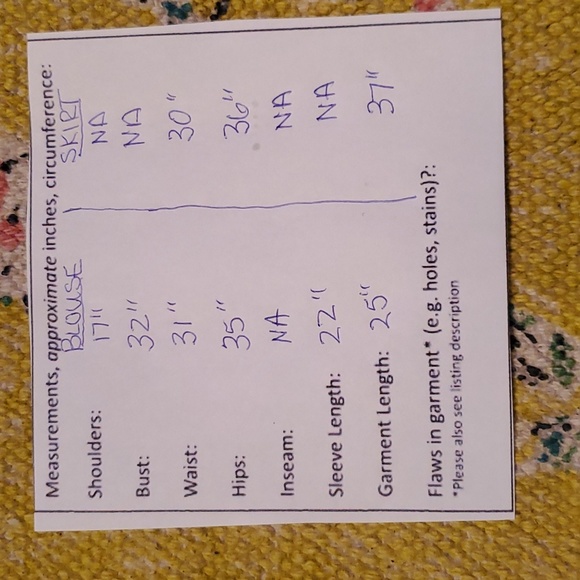 Measurements, approximate inches, circumference:
BLOUSE SKIRT
Shoulders: 17" NA
Bust: 32" NA
Waist: 31" 30"
Hips: 35" 36"
Inseam: NA NA
Sleeve Length: 22" NA
Garment Length: 25" 37"
Flaws in garment* (e.g. holes, stains)?:
*Please also see listing description